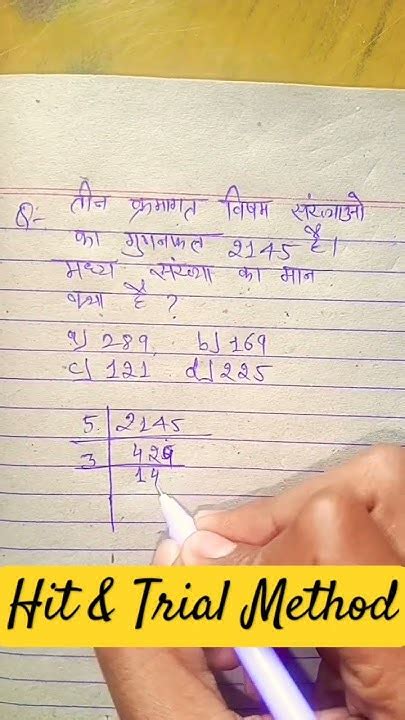 Q:- तीन क्रमागत विषम संख्याओ
का गुणनफल 2145 है।
मध्य संख्या का मान
क्या है ?
a) 289 b) 169
c) 121 d) 225
5 2145
3 429
14
Hit & Trial Method